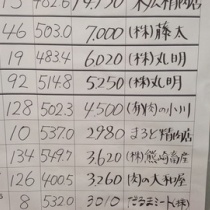 13 482.6
46 503.0 7,000 (株)藤太
19 483.4 6020 (株)丸明
92 514.8 5,250 (株)丸明
128 502.3 4,500 (有)肉の小川
10 537.0 2980 まると精肉店
134 549.7 3,620 (株)熊崎畜産
126 400.5 3,260 肉の大和屋
8 532.0 3010 だるまミート(株)